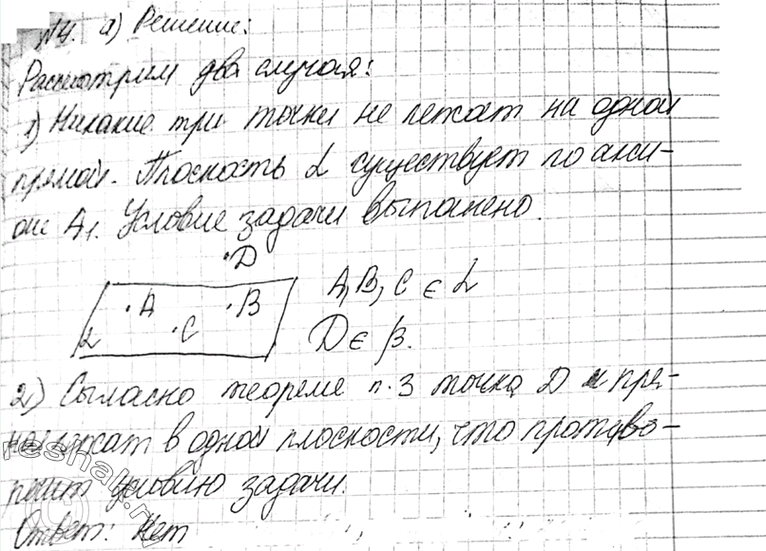 №4. а) Решение:
Рассмотрим два случая:
1) Никакие три точки не лежат на одной
прямой. Плоскость α существует по акси-
оме А1. Условие задачи выполнено.
D
A B
α C
A, B, C ∈ α
D ∈ β.
2) Согласно теореме п.3 точка D и пря-
лежат в одной плоскости, что противо-
речит условию задачи.
Ответ: Нет
reshak.ru